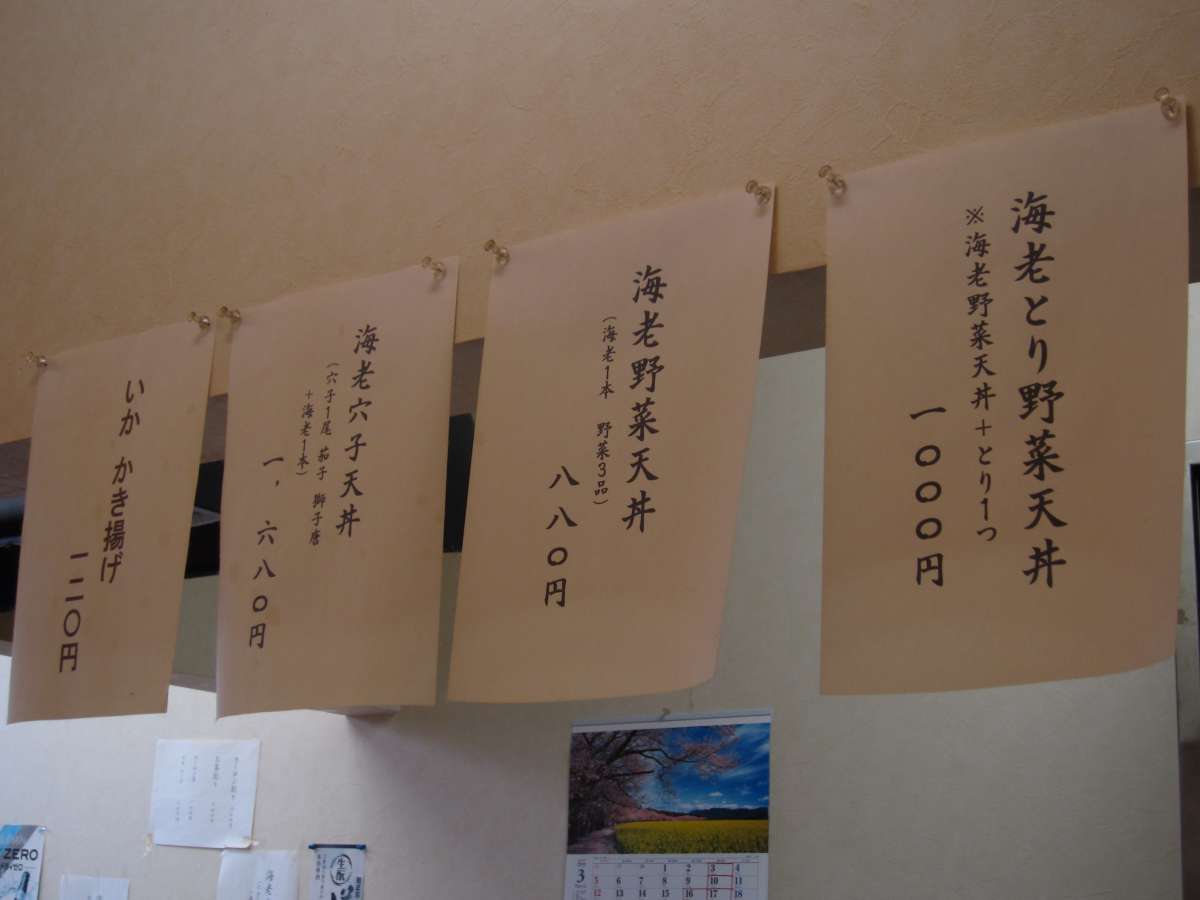 海老とり野菜天丼
※海老野菜天丼+とり1つ
一〇〇〇円
海老野菜天丼
(海老1本 野菜3品)
八八〇円
海老穴子天丼
(穴子1尾 茄子 獅子唐
+海老1本)
一,六八〇円
いか かき揚げ
一二〇円
ZERO
生
海老
3
1 2 3 4
5 6 7 8 9 10 11
12 13 14 15 16 17 18